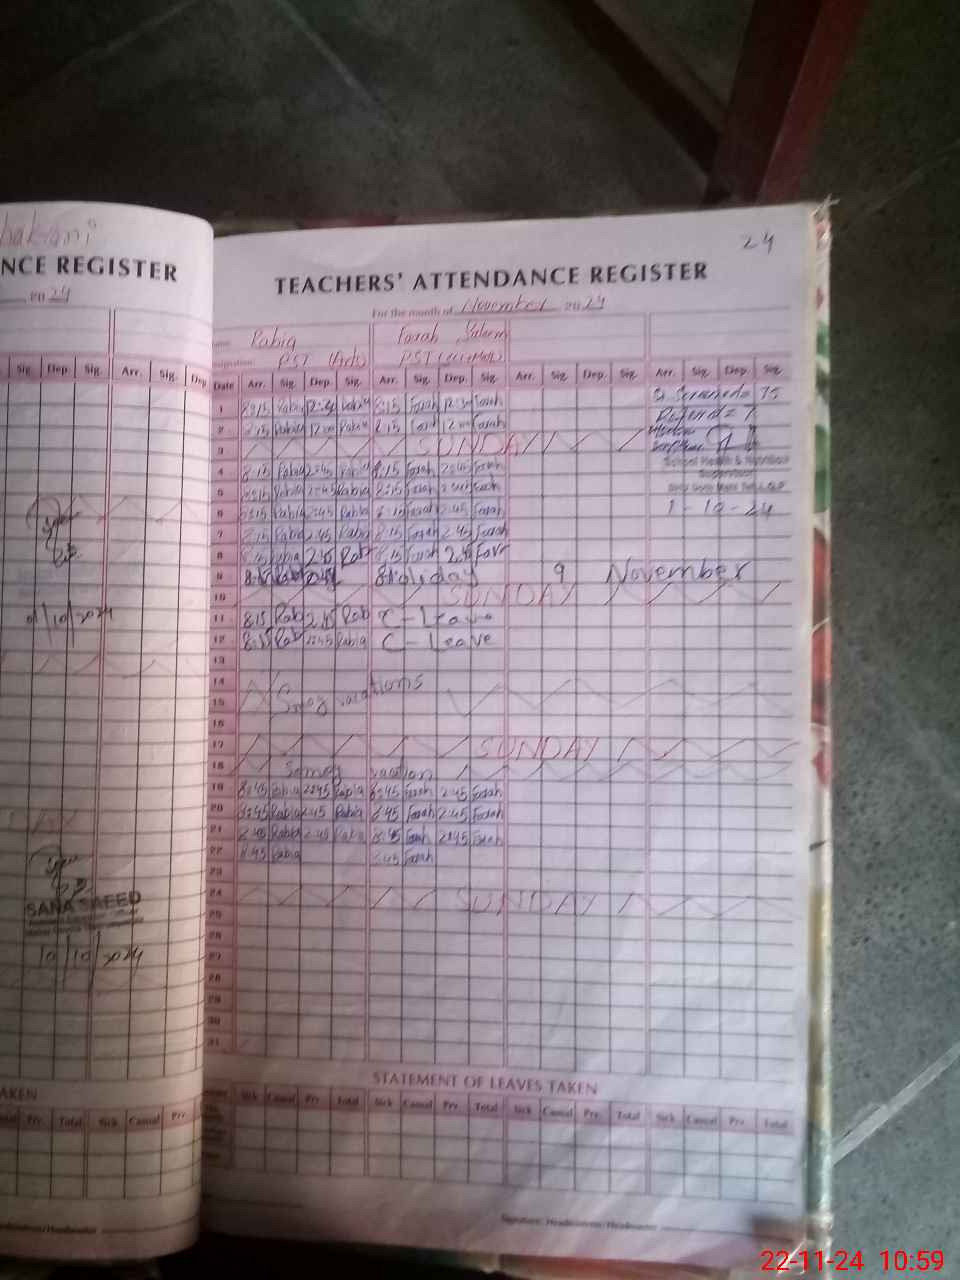 24
TEACHERS' ATTENDANCE REGISTER
For the month of November 2024
Rabia Farah Saleem
PST (Arts) PST
Date Arr. Sig. Dep. Sig. Arr. Sig. Dep. Sig. Arr. Sig. Dep. Sig. Arr. Sig. Dep. Sig.
1 8:15 Rabia 12:30 Rabia 8:15 Farah 12:30 Farah 75
2 8:15 Rabia Rabia 8:15 Farah Farah
3 SUNDAY
4 8:15 Rabia 2:45 Rabia 8:15 Farah 2:45 Farah
School Health & Nutrition
Supervisor
5 8:15 Rabia 2:45 Rabia 8:15 Farah 2:45 Farah
6 8:15 Rabia 2:45 Rabia 8:15 Farah 2:45 Farah 1-10-24
7 8:15 Rabia 2:45 Rabia 8:15 Farah 2:45 Farah
8 8:15 Rabia 2:45 Rab 8:15 Farah 2:45 Farr
9 Holiday 9 November
10 SUNDAY
11 8:15 Rab 2:45 Rab C-Leave
12 8:15 Rab 2:45 Rabia C-Leave
13
14 Smog vacations
15
16
17 SUNDAY
18 Somog vacation
19 8:45 Rabia 2:45 Rabia 8:45 Farah 2:45 Farah
20 8:45 Rabia 2:45 Rabia 8:45 Farah 2:45 Farah
21 2:45 Rabia 2:45 Rabia 8:45 Farah 2:45 Farah
22 8:45 Rabia Farah
23
24 SUNDAY
25
26
27
28
29
30
31
STATEMENT OF LEAVES TAKEN
Sick Casual Prv. Total Sick Casual Prv. Total Sick Casual Prv. Total Sick Casual Prv. Total
Signature: Headmistress/Headmaster
NCE REGISTER
2024
Sig. Dep. Sig. Arr. Sig. Dep.
01/10/2024
SANA SAEED
10/10/2024
AKEN
Prv. Total Sick Casual Prv.
22-11-24 10:59